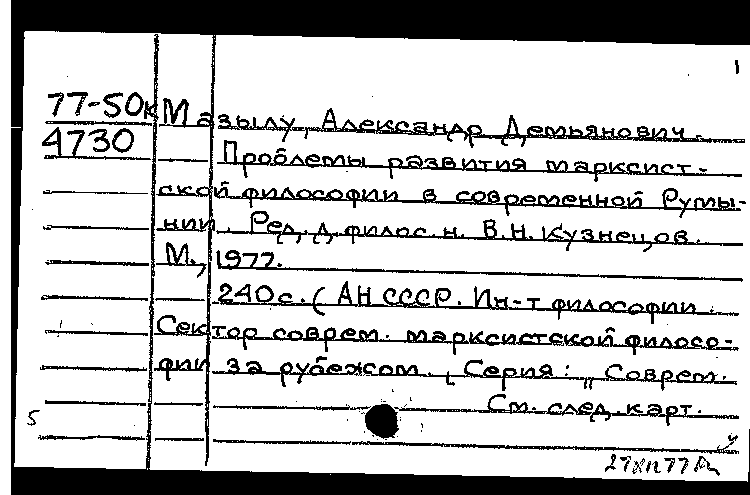 1
77-50к Мазылу, Александр Демьянович.
4730 Проблемы развития марксист-
ской философии в современной Румы-
нии. Ред. д. филос. н. В.Н. Кузнецов.
М., 1977.
240 с. (АН СССР. Ин-т философии.
Сектор соврем. марксистской филосо-
фии за рубежом. Серия: „Соврем.
См. след. карт.
5
27 XII 77